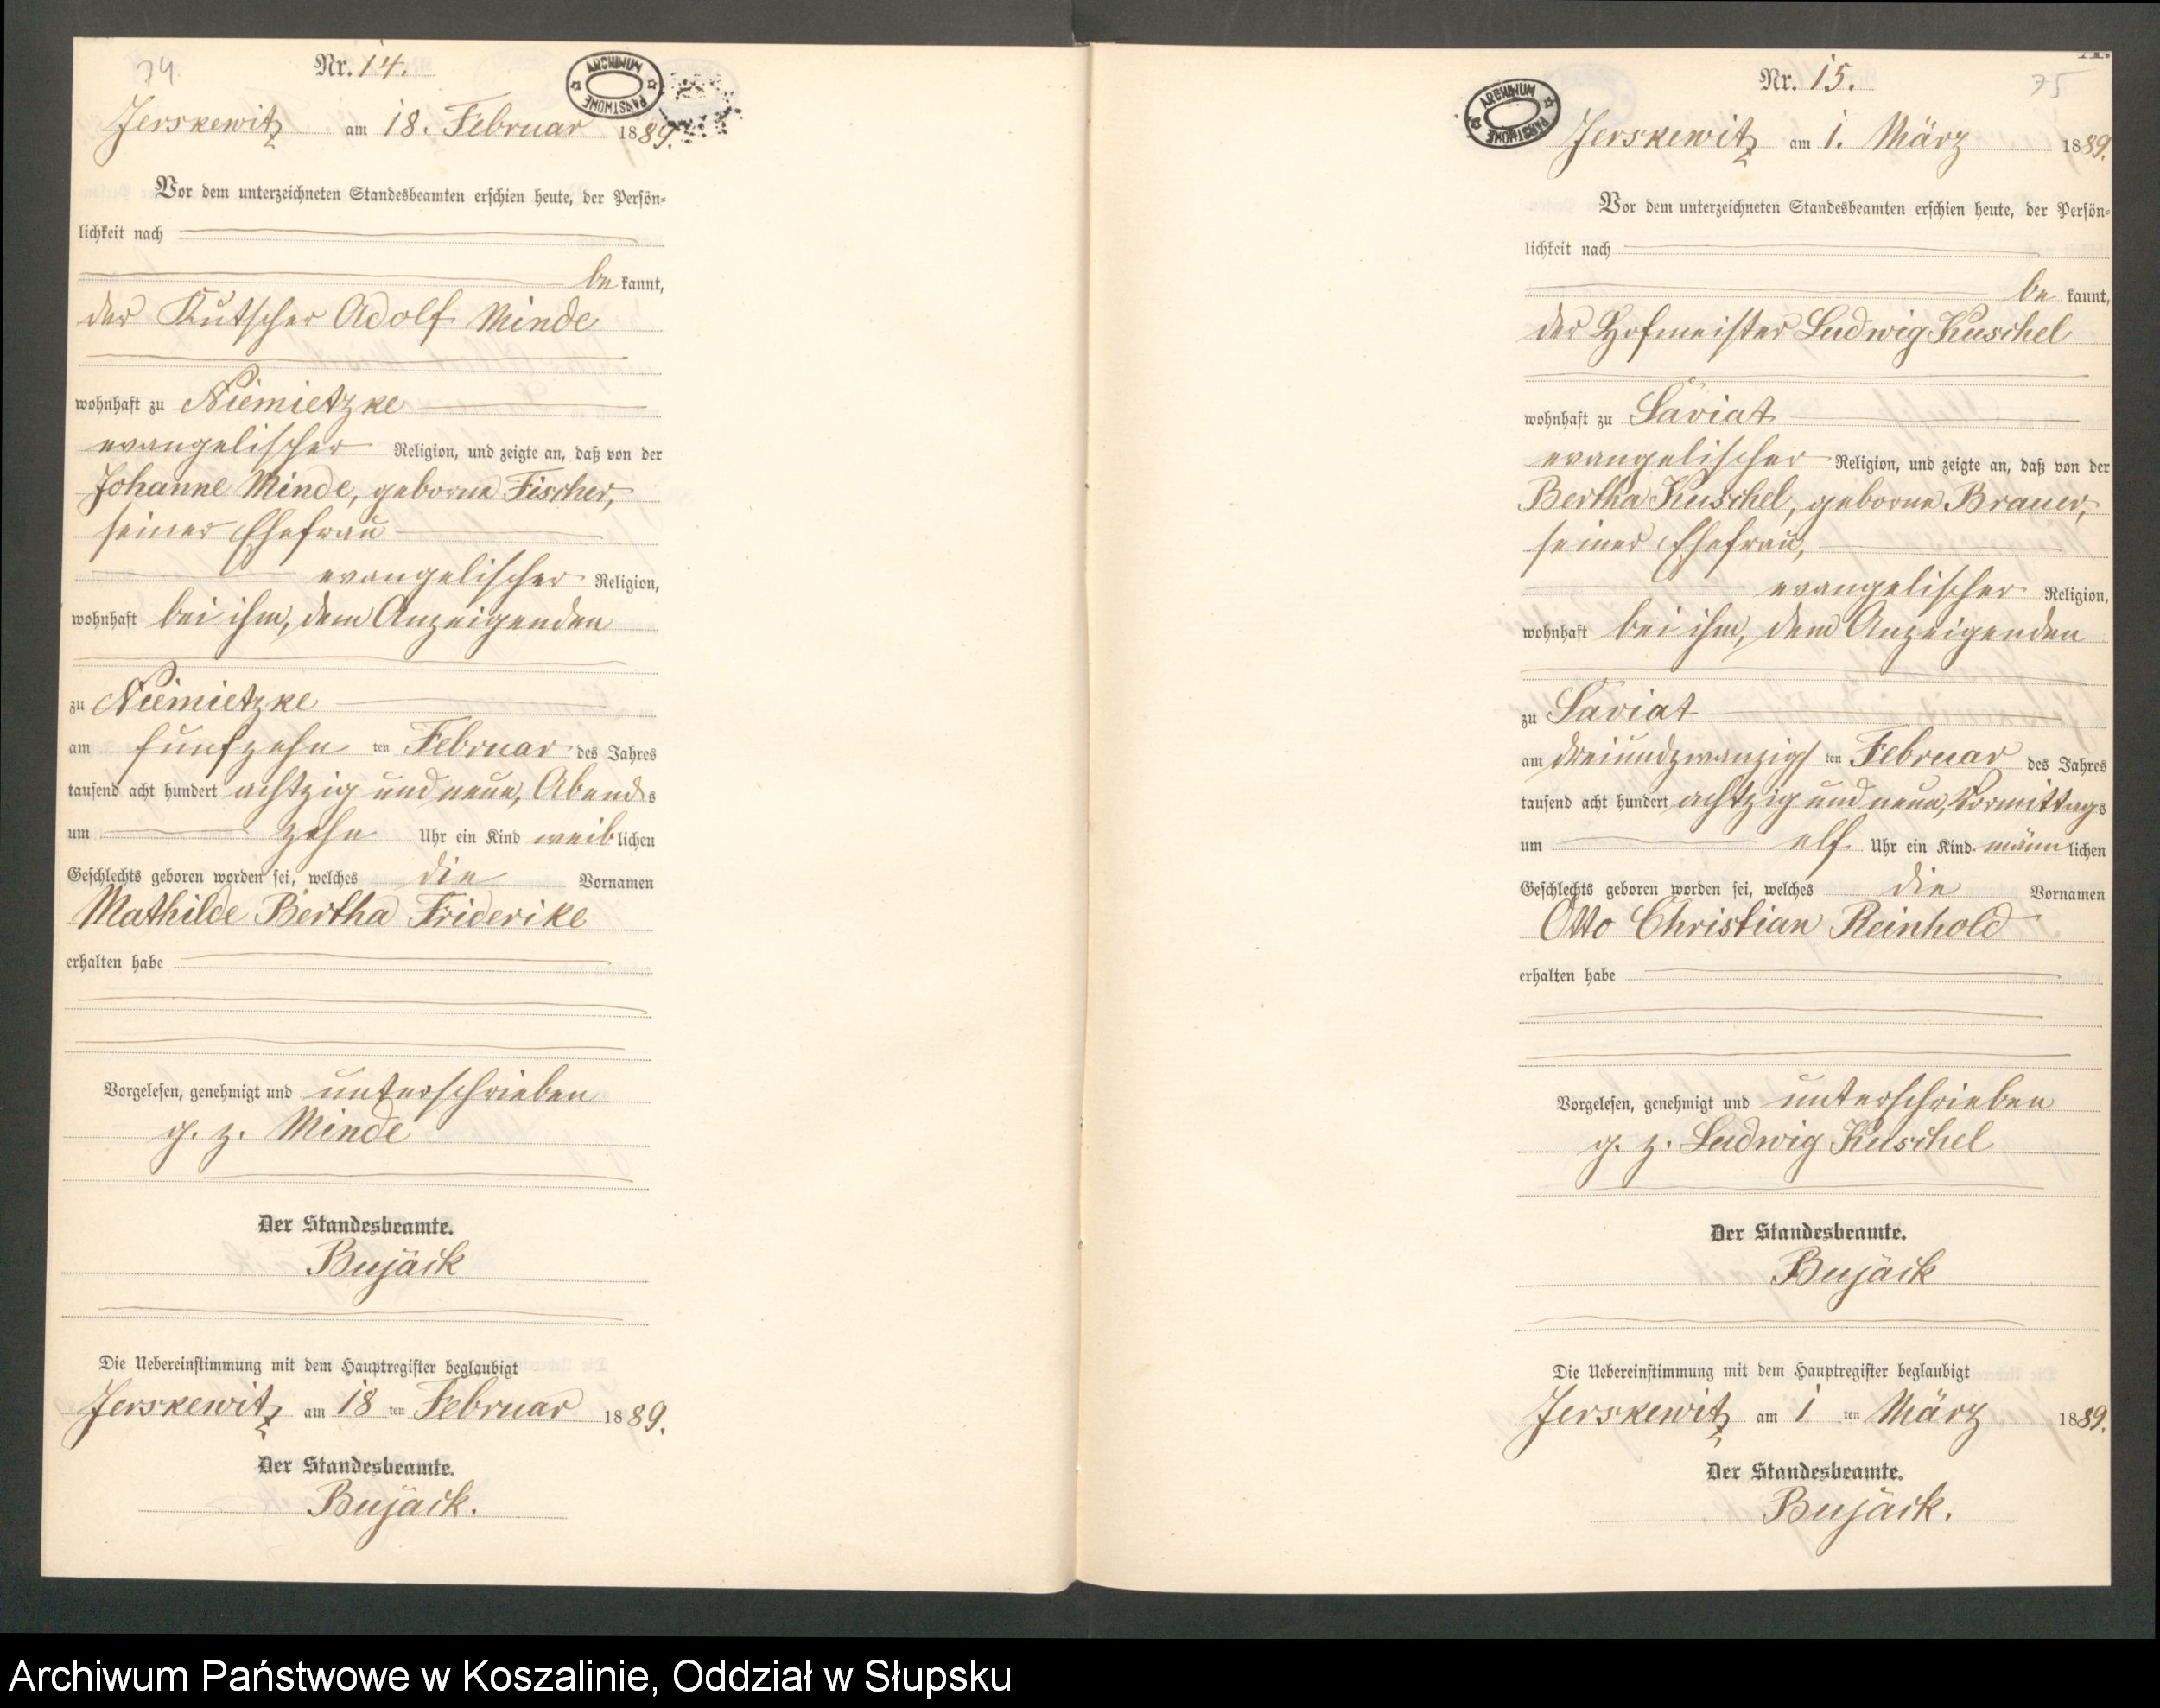 74.
Nr. 14.
ARCHIWUM PAŃSTWOWE
Jerskewitz am 18. Februar 1889.
Vor dem unterzeichneten Standesbeamten erschien heute, der Persön-
lichkeit nach
be kannt,
der Kutscher Adolf Minde
wohnhaft zu Niemietzke
evangelischer Religion, und zeigte an, daß von der
Johanne Minde, geborne Fischer,
seiner Ehefrau
evangelischer Religion,
wohnhaft bei ihm, dem Anzeigenden
zu Niemietzke
am fünfzehn ten Februar des Jahres
tausend acht hundert achtzig und neun, Abends
um zehn Uhr ein Kind weiblichen
Geschlechts geboren worden sei, welches die Vornamen
Mathilde Bertha Friderike
erhalten habe
Vorgelesen, genehmigt und unterschrieben
g. z. Minde
Der Standesbeamte.
Bujäck
Die Uebereinstimmung mit dem Hauptregister beglaubigt
Jerskewitz am 18 ten Februar 1889.
Der Standesbeamte.
Bujäck.
Nr. 15.
75
ARCHIWUM PAŃSTWOWE
Jerskewitz am 1. März 1889.
Vor dem unterzeichneten Standesbeamten erschien heute, der Persön-
lichkeit nach
be kannt,
der Hofmeister Ludwig Kuschel
wohnhaft zu Saviat
evangelischer Religion, und zeigte an, daß von der
Bertha Kuschel, geborne Brauer,
seiner Ehefrau,
evangelischer Religion,
wohnhaft bei ihm, dem Anzeigenden
zu Saviat
am dreiundzwanzigs ten Februar des Jahres
tausend acht hundert achtzig und neun, Vormittags
um elf Uhr ein Kind männlichen
Geschlechts geboren worden sei, welches die Vornamen
Otto Christian Reinhold
erhalten habe
Vorgelesen, genehmigt und unterschrieben
g. z. Ludwig Kuschel
Der Standesbeamte.
Bujäck
Die Uebereinstimmung mit dem Hauptregister beglaubigt
Jerskewitz am 1 ten März 1889.
Der Standesbeamte.
Bujäck.
Archiwum Państwowe w Koszalinie, Oddział w Słupsku